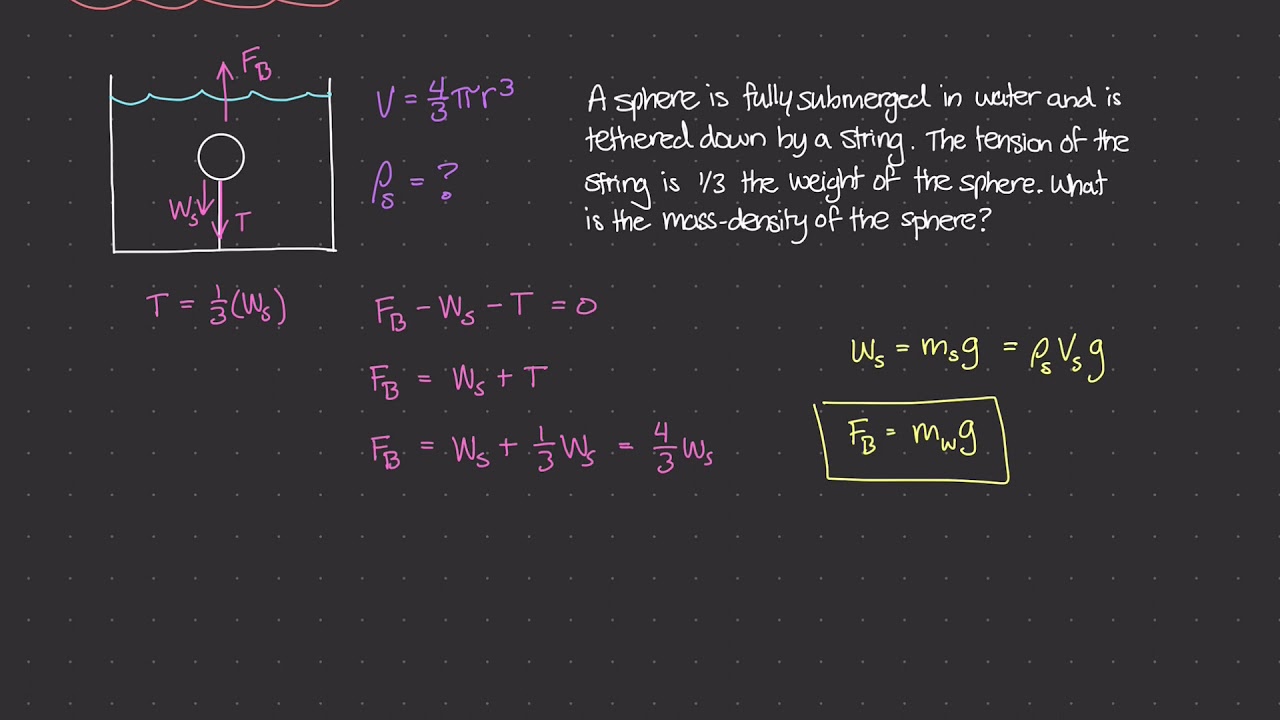 F_B
V = 4/3 πr³
A sphere is fully submerged in water and is
tethered down by a string. The tension of the
ρ_s = ?
string is 1/3 the weight of the sphere. What
W_s T
is the mass-density of the sphere?
T = 1/3 (W_s)
F_B - W_s - T = 0
W_s = m_s g = ρ_s V_s g
F_B = W_s + T
F_B = m_w g
F_B = W_s + 1/3 W_s = 4/3 W_s